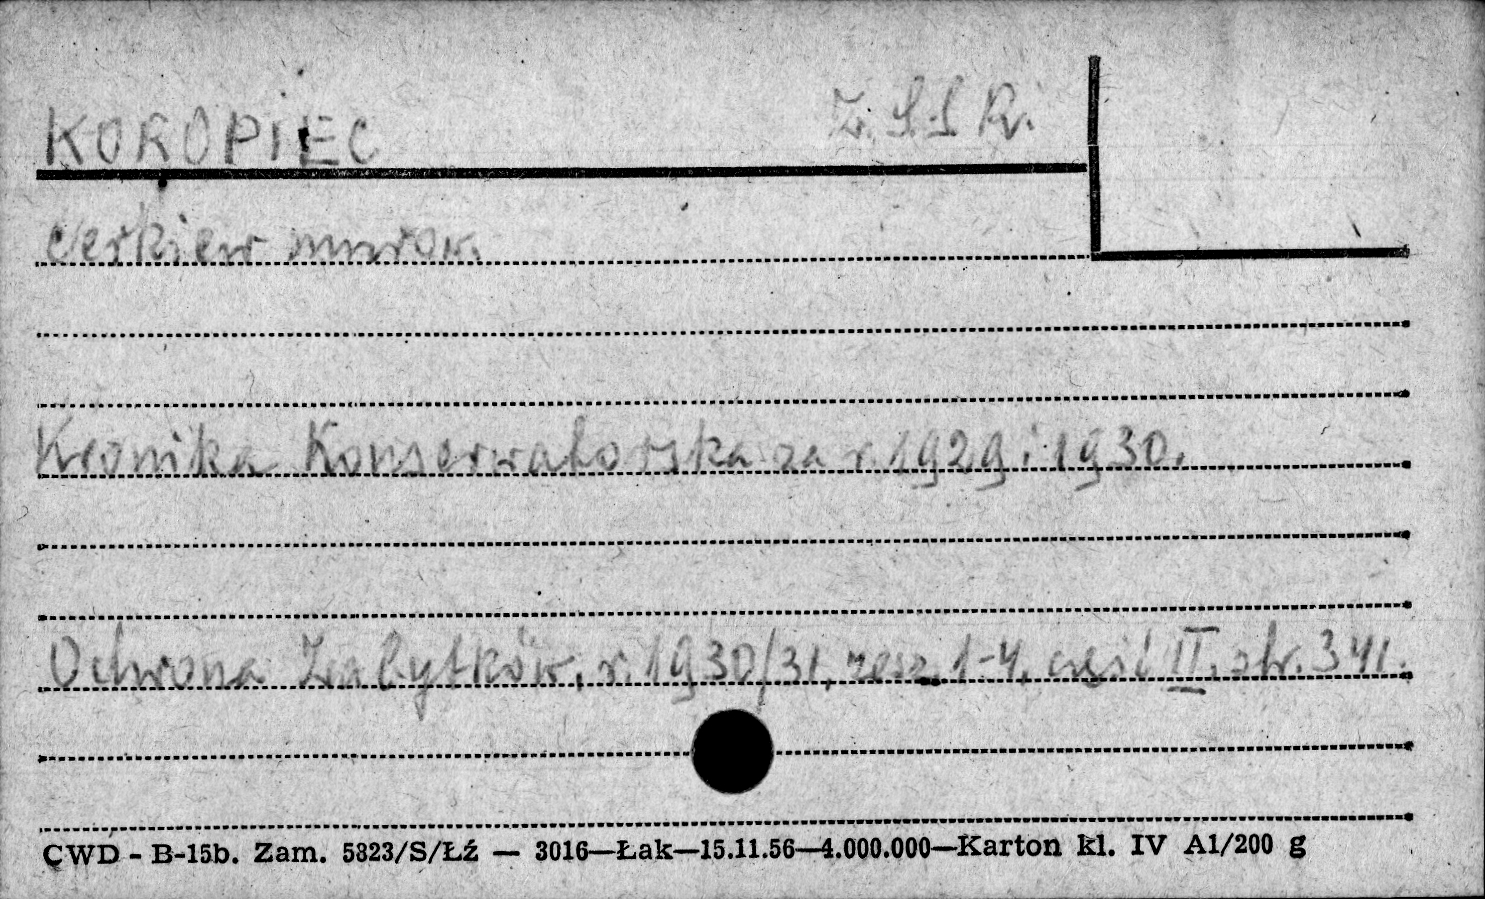 KOROPIEC Z.S.S.R.
cerkiew murow.
Kronika Konserwatorska za r. 1929 i 1930.
Ochrona Zabytków, r. 1930/31, zesz. 1-4, część II. str. 341.
CWD - B-15b. Zam. 5823/S/Łź — 3016—Łak—15.11.56—4.000.000—Karton kl. IV A1/200 g